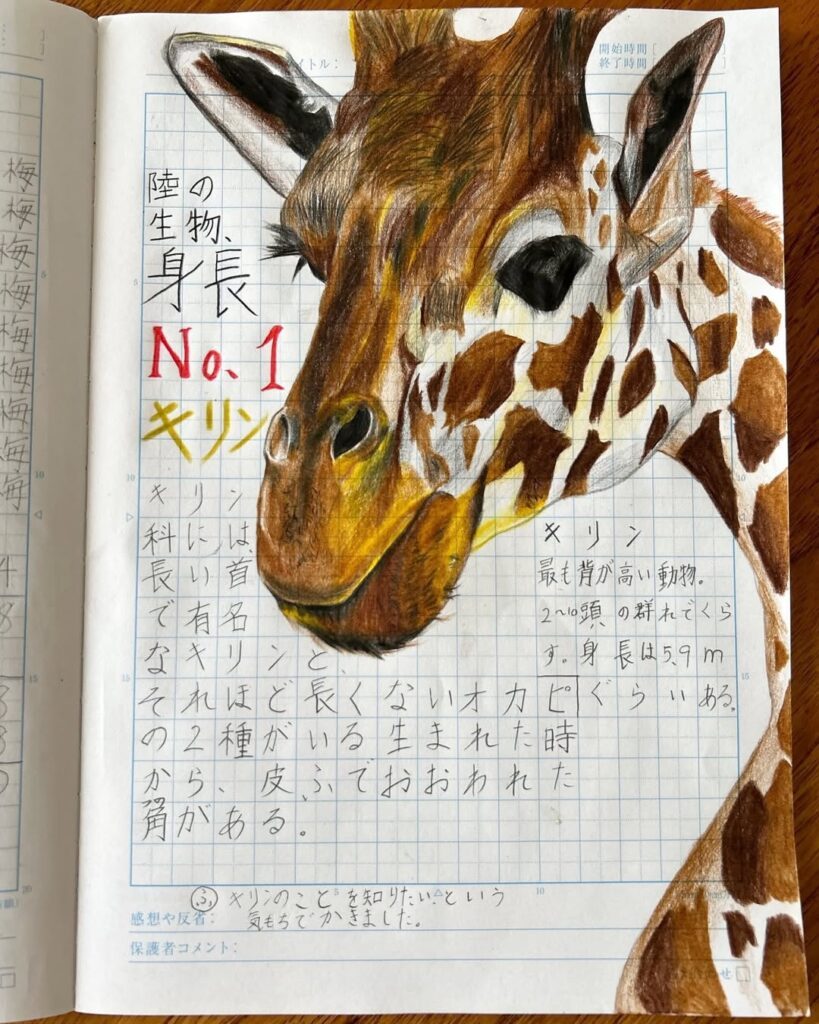 イトル：
開始時間［
終了時間［
陸の
生物、
身長
No.1
キリン
キリン
科には、
長い首
で有名
なキリンと、
それほど長くないオカピ
の2種がいる生まれた時
から、皮ふでおおわれた
角がある。
キリン
最も背が高い動物。
2〜10頭の群れでくら
す。身長は5.9m
ぐらいある。
ふ キリンのことを知りたいという
気もちでかきました。
感想や反省：
保護者コメント：
梅
梅
梅
梅
梅
梅
梅
5
10
15
20
5
10
15
5
10
10
15